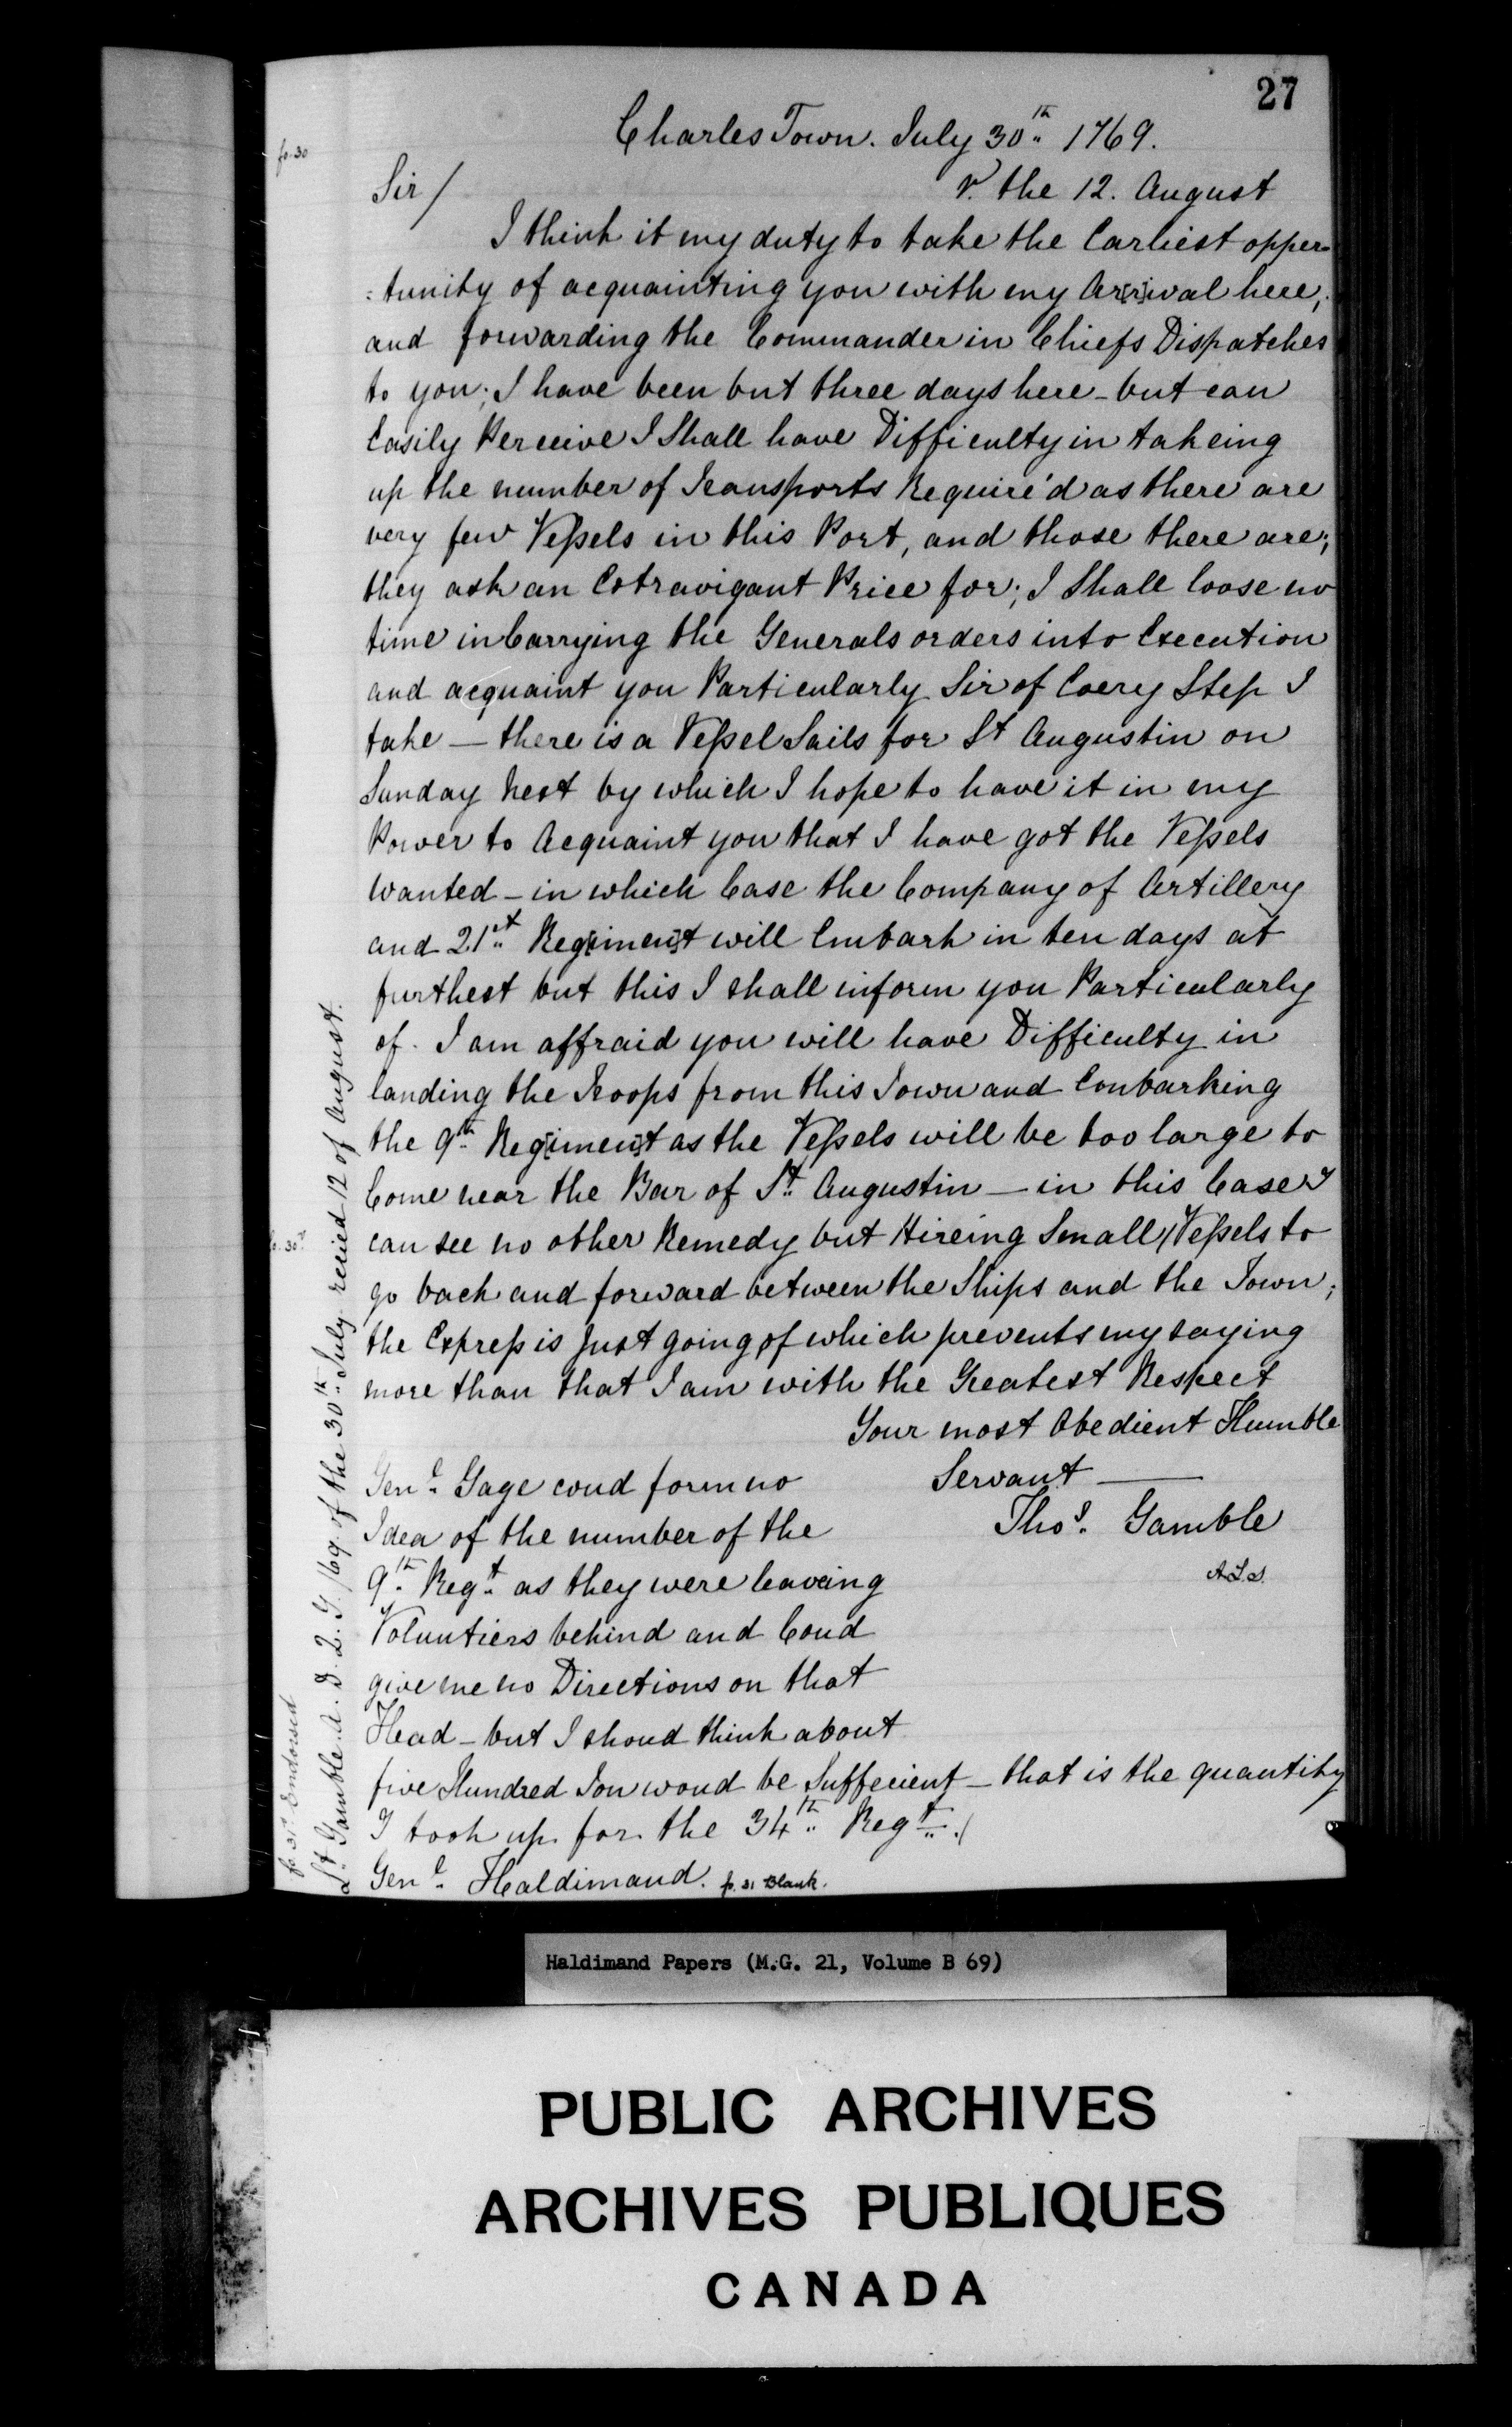 27
Charles Town. July 30th 1769.
fo. 30
Sir/
r. the 12. August
I think it my duty to take the Earliest opper=
:tunity of acquainting you with my Ar[r]ival here,
and forwarding the Commander in Chiefs Dispatches
to you; I have been but three days here - but can
Easily Perceive I Shall have Difficulty in takeing
up the number of Transports Require'd as there are
very few Veſsels in this Port, and those there are;
they ask an Extravigant Price for; I Shall loose no
time in Carrying the Generals orders into Execution
and acquaint you Particularly Sir of Every Step I
take — there is a Veſsel Sails for St Augustin on
Sunday Next by which I hope to have it in my
Power to Acquaint you that I have got the Veſsels
Wanted - in which Case the Company of Artillery
and 21st Reg[imen]t will Embark in ten days at
furthest but this I shall inform you Particularly
of. I am affraid you will have Difficulty in
landing the Troops from this Town and Embarking
the 9th Reg[imen]t as the Veſsels will be too large to
Come near the Bar of St Augustin — in this Case I
fo. 30v.
can see no other Remedy but Hireing Small Veſsels to
go back and forward between the Ships and the Town;
the Expreſs is Just going of which prevents my saying
more than that I am with the Greatest Respect
Your most Obedient Humble
Servant —
Thos. Gamble
A.L.S.
Genl. Gage coud form no
Idea of the number of the
9th Regt as they were leaveing
Voluntiers behind and Coud
give me no Directions on that
Head - but I shoud think about
five Hundred Ton woud be Suffecient - that is the quantity
I took up for the 34th Regt. /
Genl. Haldimand. fo. 31 Blank.
fo. 31v Endorsed
Lt Gamble A. D. Q. G. /69 of the 30th July recied 12 of August.
Haldimand Papers (M.G. 21, Volume B 69)
PUBLIC ARCHIVES
ARCHIVES PUBLIQUES
CANADA